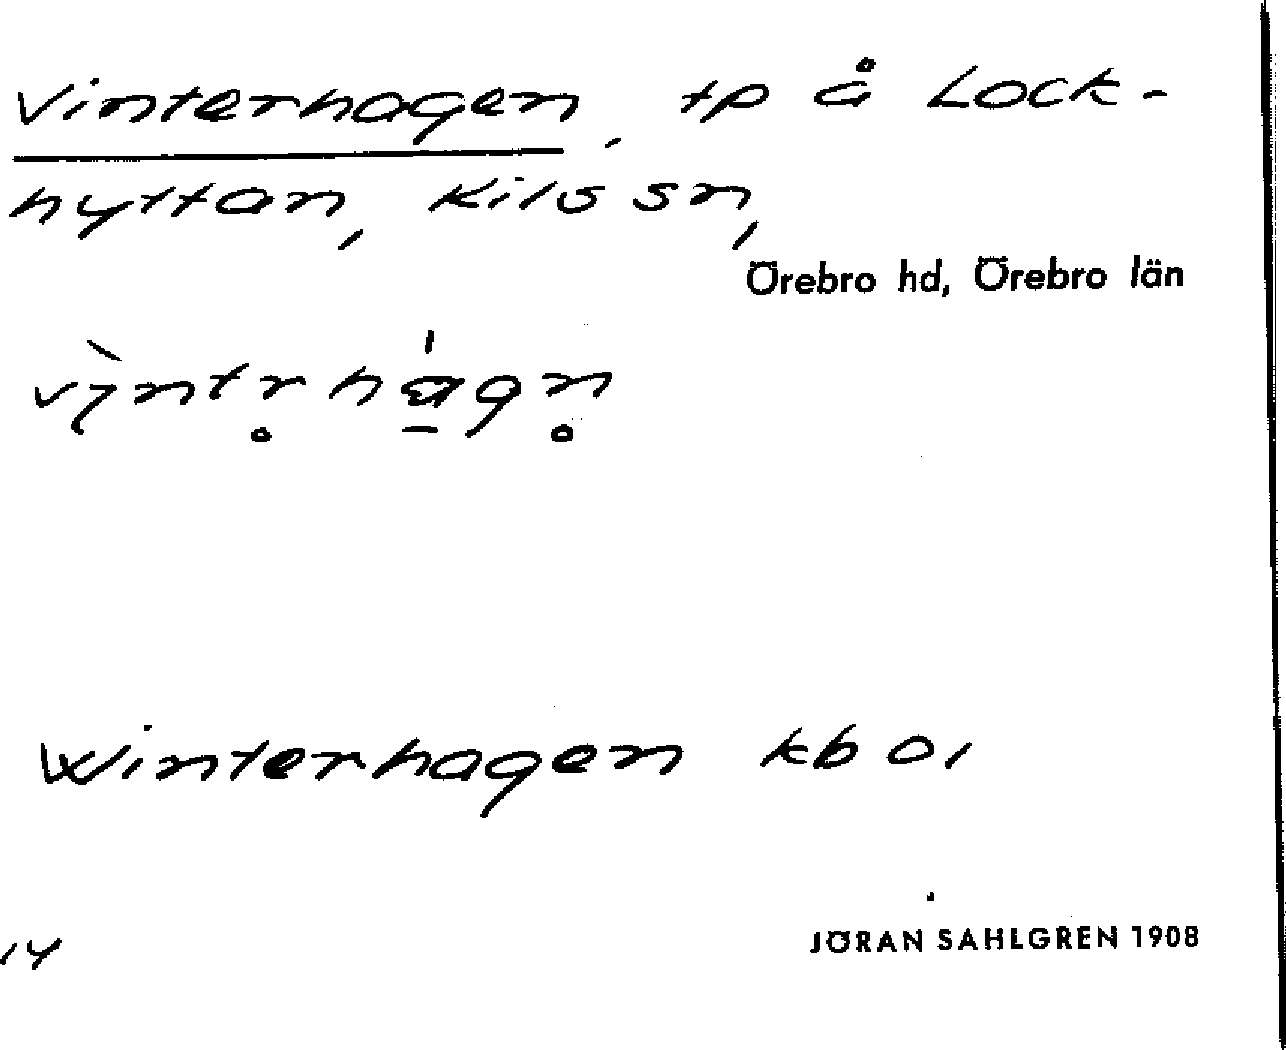 Vinterhagen, tp å Lock-
hyttan, Kils sn,
Örebro hd, Örebro län
vìntr̥há̱gn̥
Winterhagen kb 01
14
JÖRAN SAHLGREN 1908